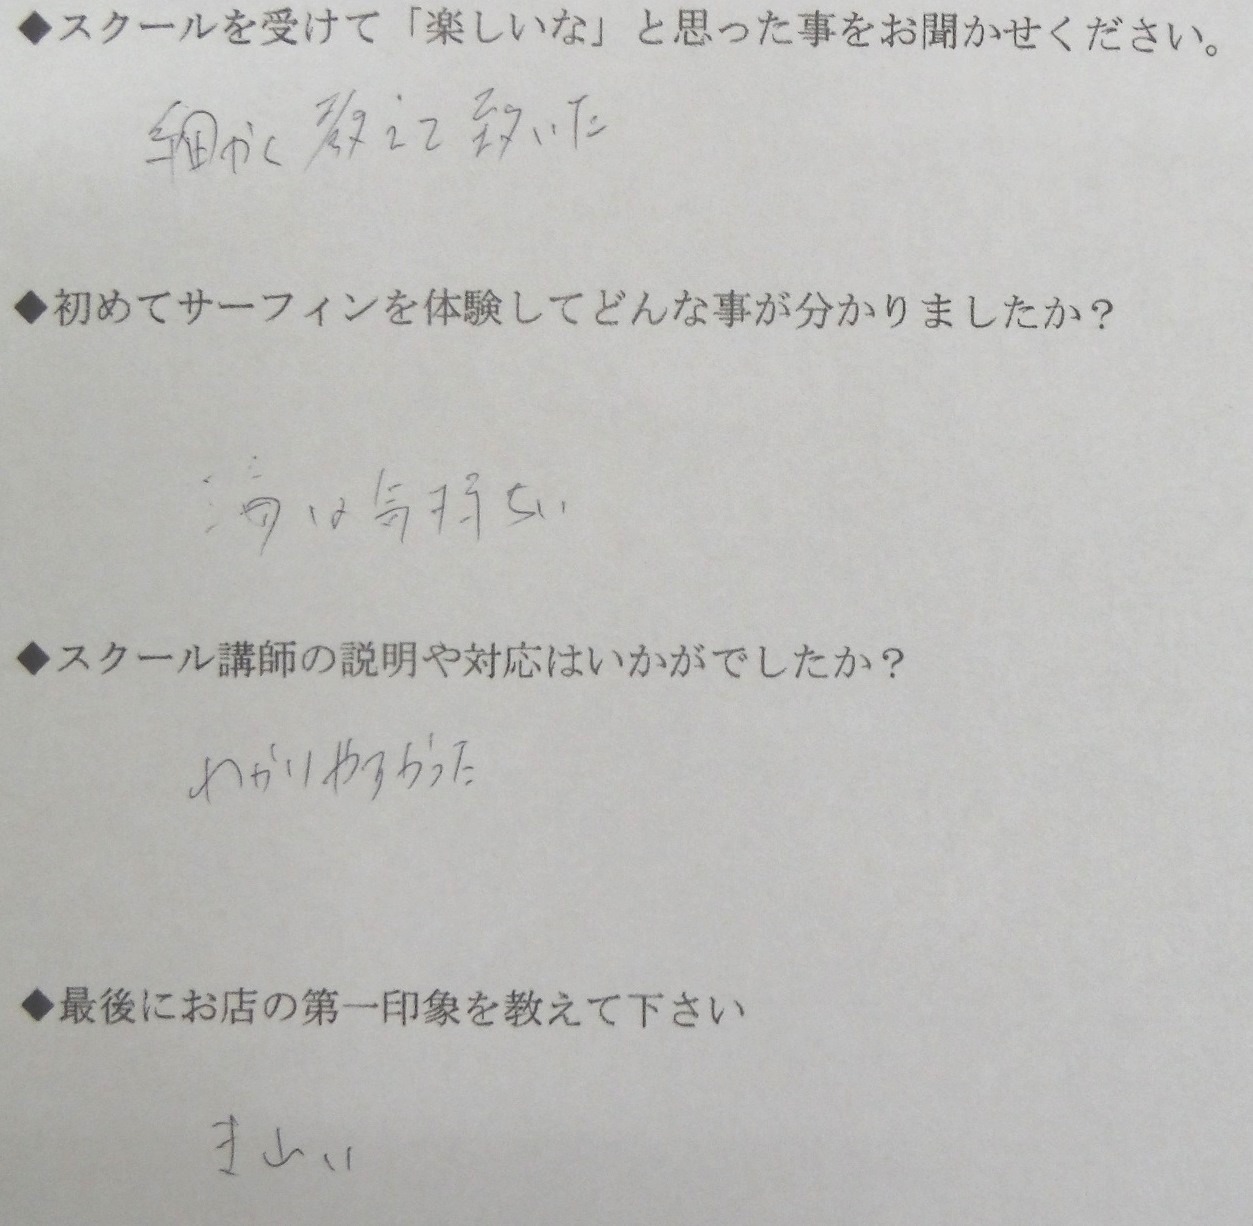 ◆スクールを受けて「楽しいな」と思った事をお聞かせください。
細かく教えて頂いた
◆初めてサーフィンを体験してどんな事が分かりましたか？
海は気持ちいい
◆スクール講師の説明や対応はいかがでしたか？
わかりやすかった
◆最後にお店の第一印象を教えて下さい